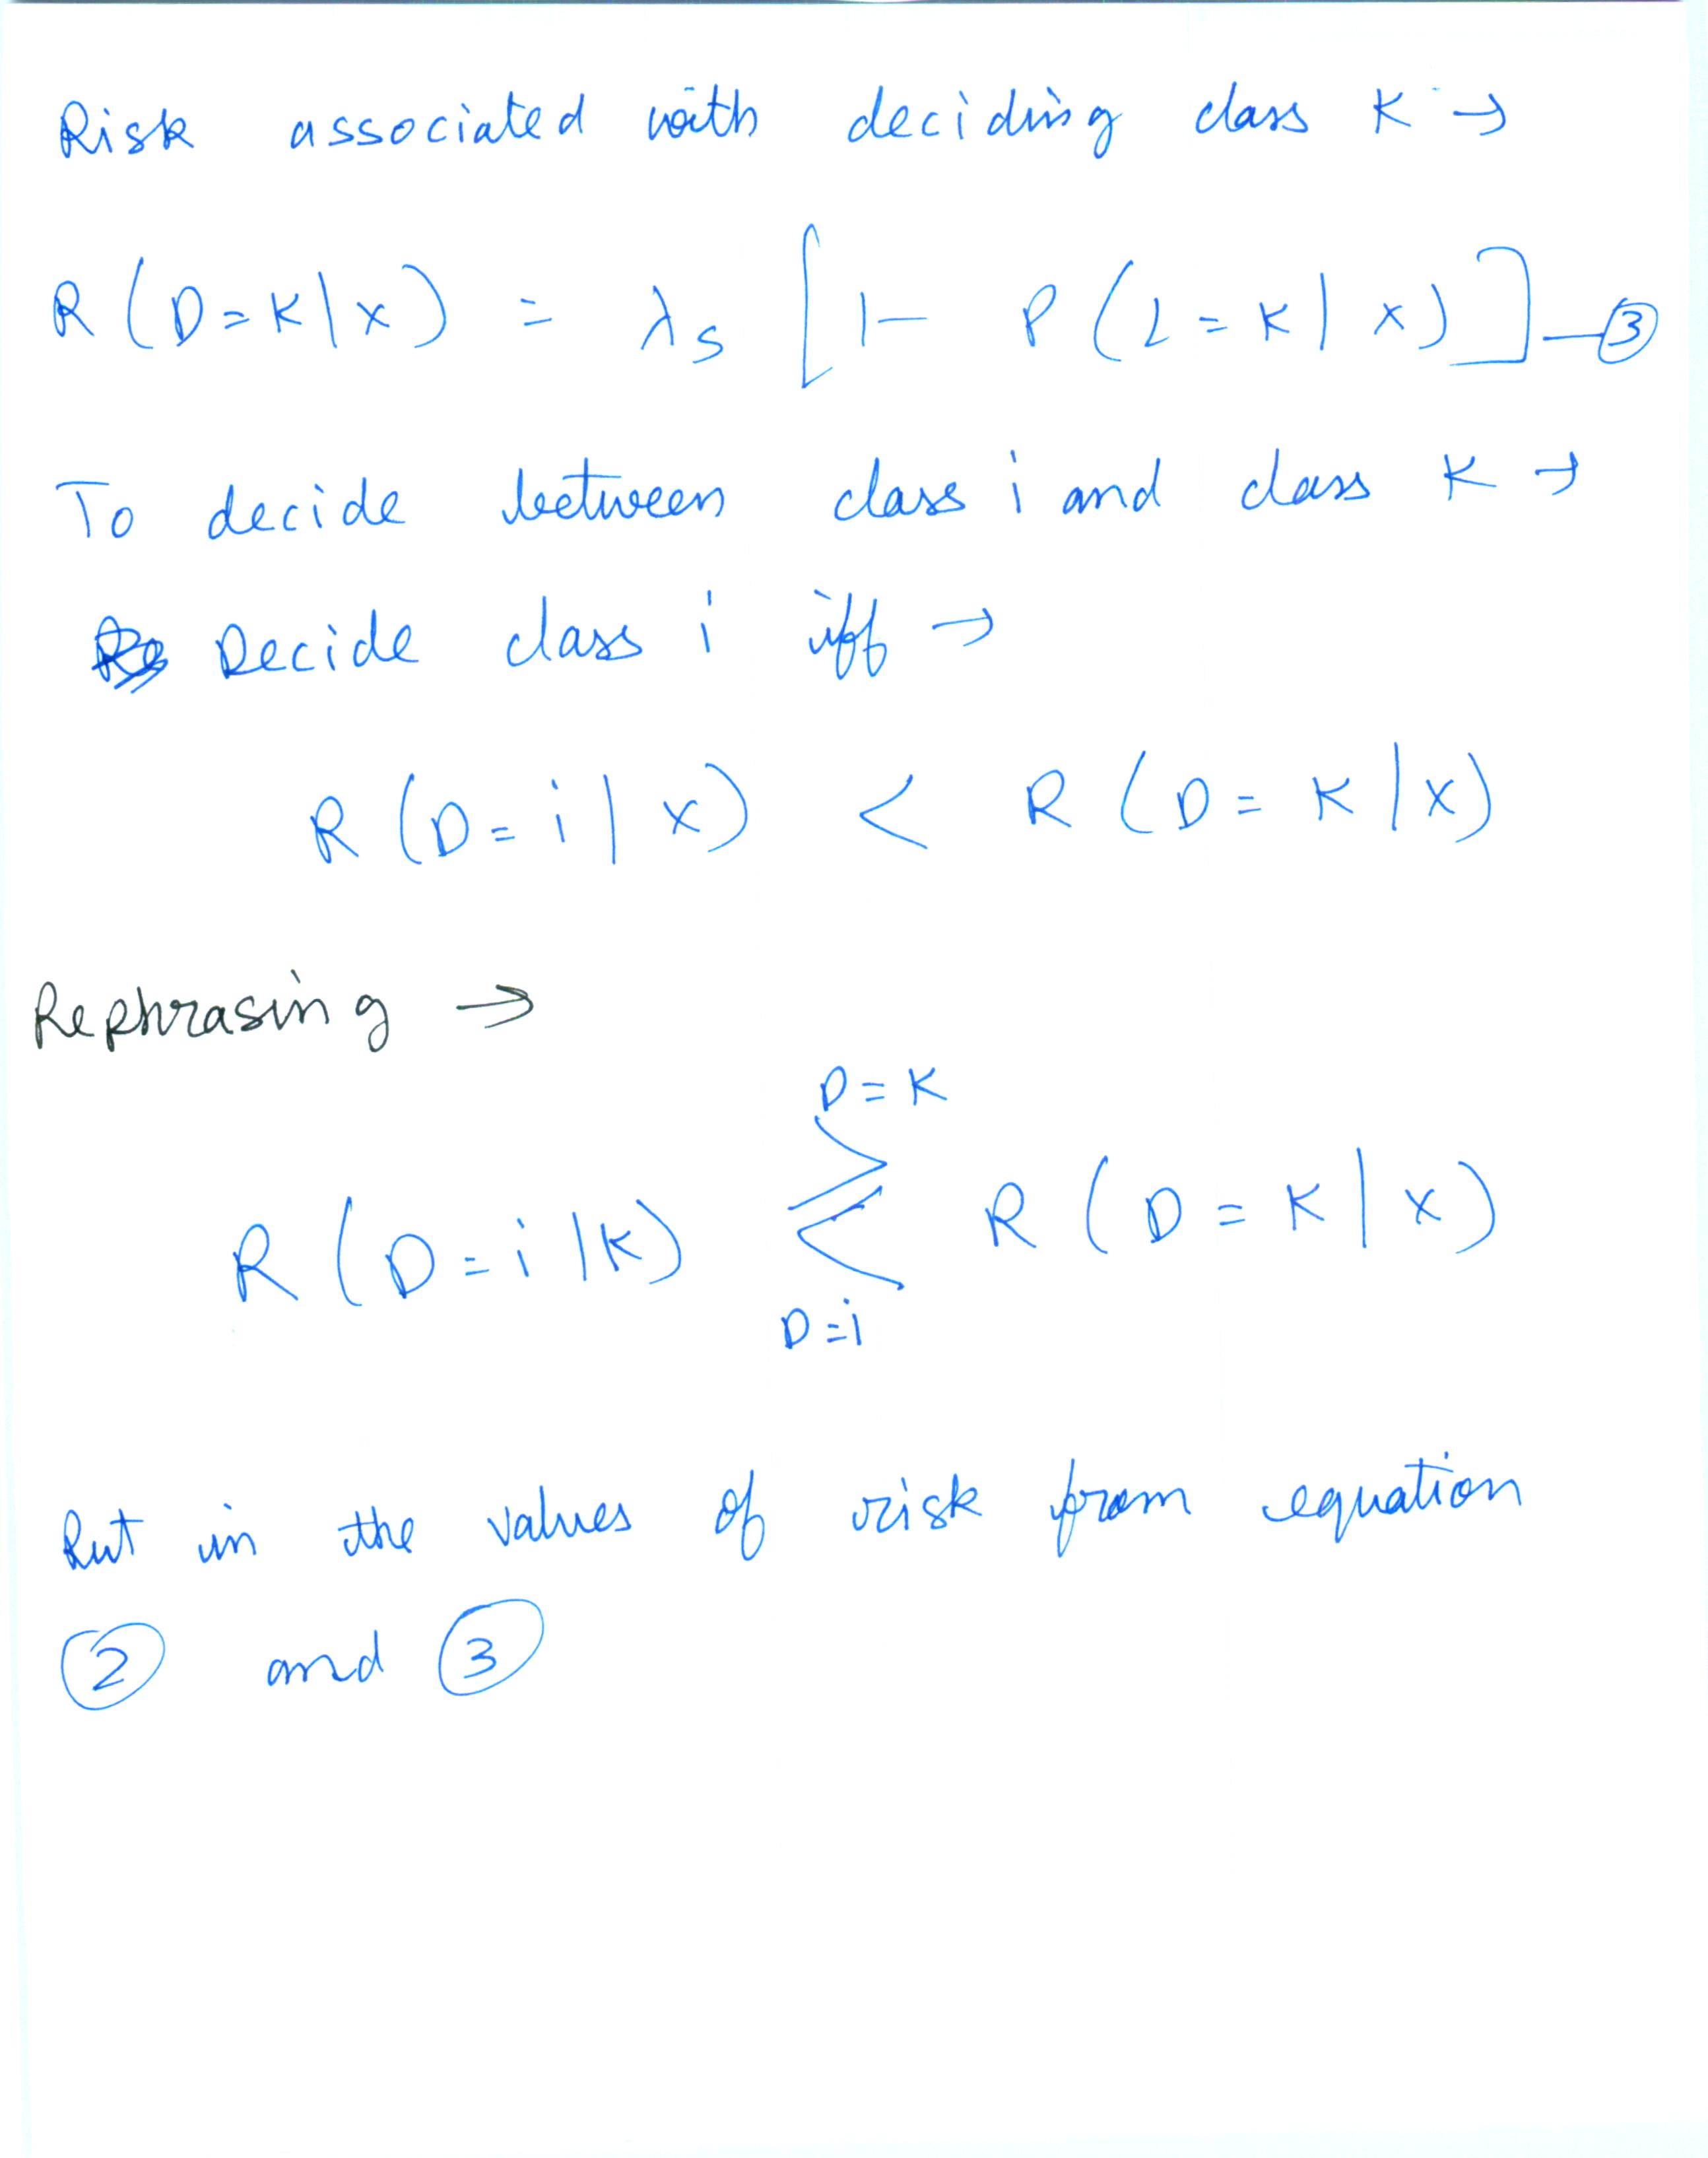 Risk associated with deciding class K →
R (D=K|x) = λs [1- P(L=K|x)] — ③
To decide between class i and class K →
Decide class i iff →
R (D=i|x) < R (D=K|x)
Rephrasing →
D=K
R (D=i|K) ≷ R (D=K|x)
D=i
Put in the values of risk from equation
② and ③